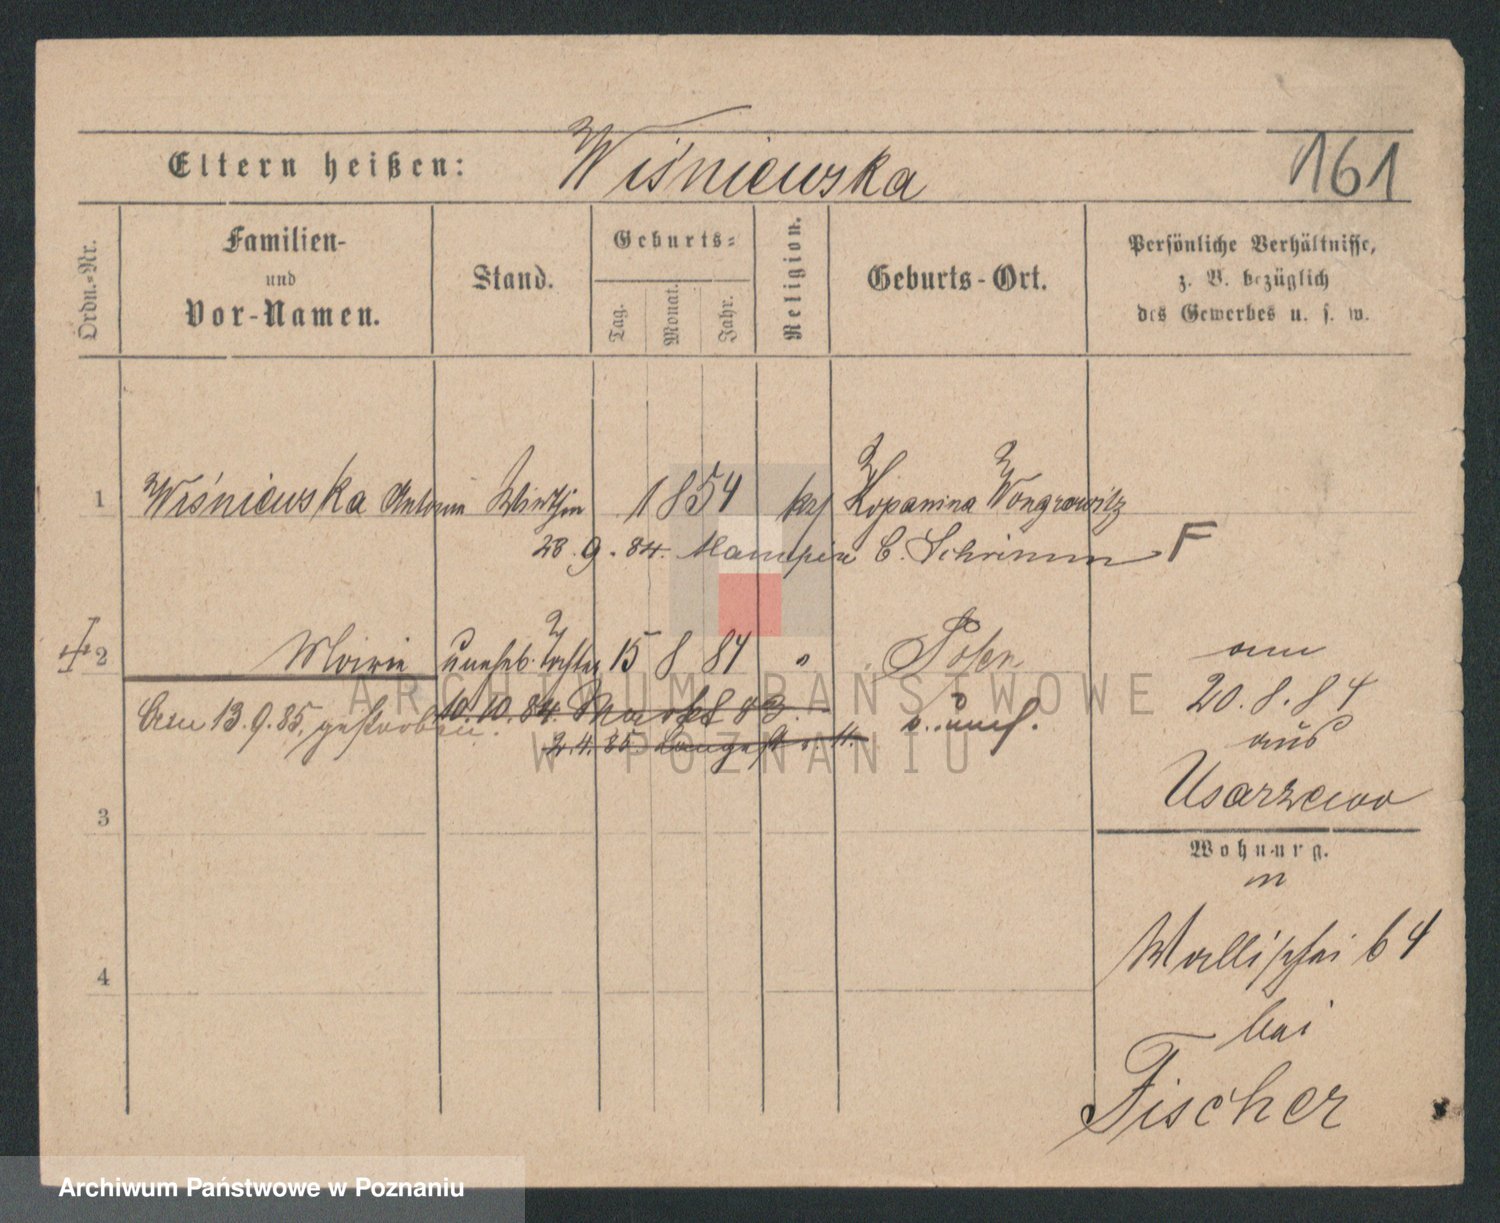 Eltern heißen: Wiśniewska 161
Ordn.-Nr.
Familien-
und
Vor-Namen.
Stand.
Geburts-
Tag.
Monat.
Jahr.
Religion.
Geburts-Ort.
Persönliche Verhältnisse,
z. B. bezüglich
des Gewerbes u. s. w.
1 Wiśniewska Antonia Wirthin 1854 Kopanina Wongrowitz
28. 9. 84. C. Schrimm F
2 Marie unehel. Tochter 15 8 84 " Posen
Am 13.9.85. gestorben.
10. 10. 84. Markt 83
2. 4. 85
am
20. 8. 84
aus
Usarzewo
3
Wohnung.
in
Wallischei 64
4
bei
Fischer
ARCHIWUM PAŃSTWOWE
W POZNANIU
Archiwum Państwowe w Poznaniu